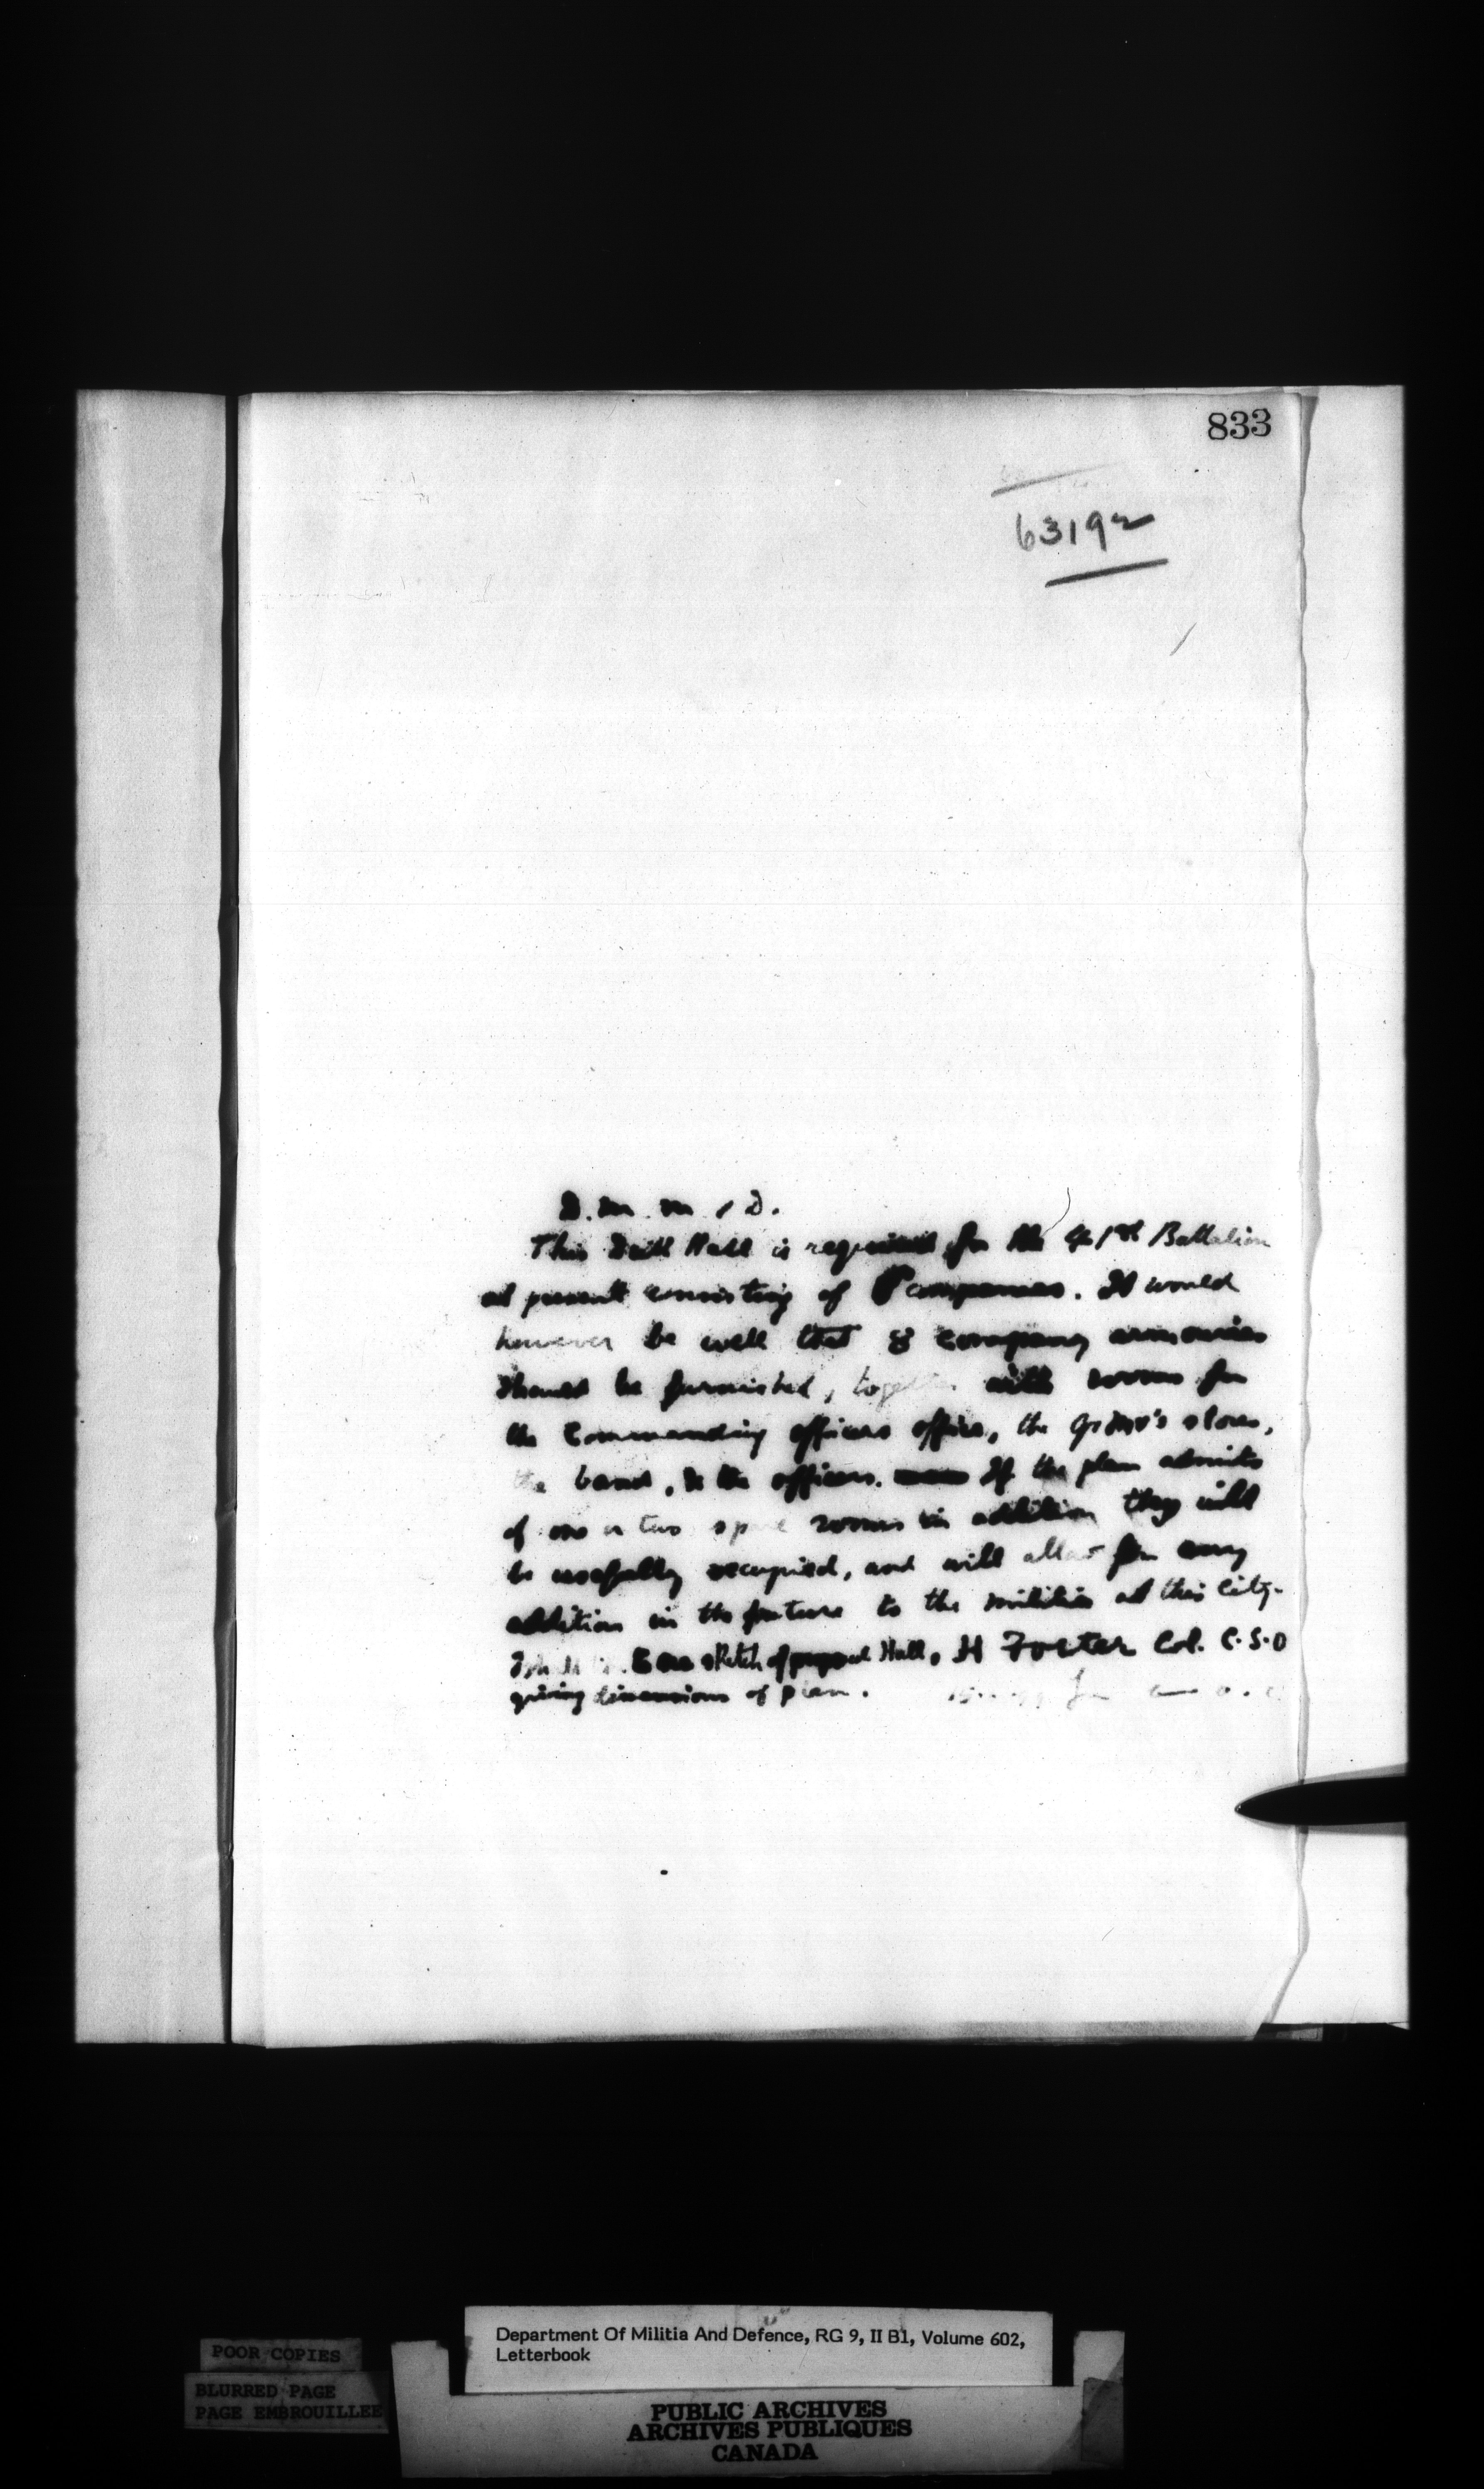 833
63192
D. M. M. & D.
This Drill Hall is required for the 41st Battalion
at present consisting of companies. It would
however be well that 8 company armouries
should be furnished, together with rooms for
the Commanding officers office, the stores,
the band, & the officers. If the plan admits
of one or two spare rooms in addition they will
be usefully occupied, and will allow for any
addition in the future to the militia at this City.
sketch of proposed Hall, H Foster Col. C.S.O
giving dimensions of plan.
Department Of Militia And Defence, RG 9, II B1, Volume 602,
Letterbook
POOR COPIES
BLURRED PAGE
PAGE EMBROUILLEE
PUBLIC ARCHIVES
ARCHIVES PUBLIQUES
CANADA